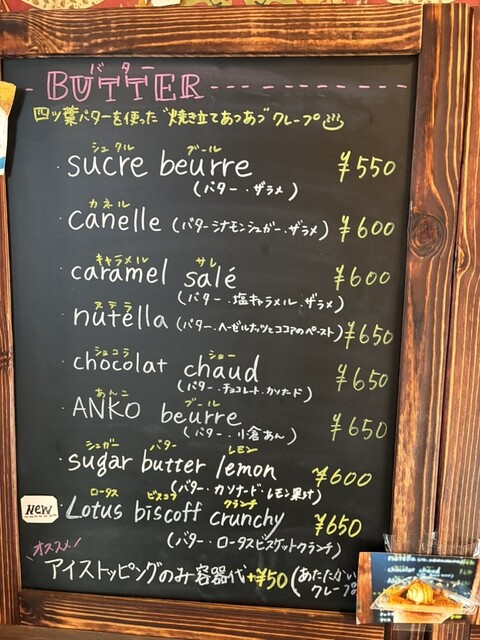 バター
BUTTER
四ツ葉バターを使った"焼き立てあつあつ"クレープ
シュクル ブール
・sucre beurre ¥550
(バター・ザラメ)
カネル
・canelle (バターシナモンシュガー・ザラメ) ¥600
キャラメル サレ
・caramel salé ¥600
(バター・塩キャラメル・ザラメ)
ヌテラ
・nutella (バター・ヘーゼルナッツとココアのペースト) ¥650
ショコラ ショー
・chocolat chaud ¥650
(バター・チョコレート・カソナード)
あんこ ブール
・ANKO beurre ¥650
(バター・小倉あん)
シュガー バター レモン
・sugar butter lemon ¥600
(バター・カソナード・レモン果汁)
ロータス ビスコフ クランチ
New Lotus biscoff crunchy ¥650
(バター・ロータスビスケットクランチ)
オススメ!
アイストッピングのみ容器代+¥50 (あたたかい
クレープ)
nutella
chocolat chaud